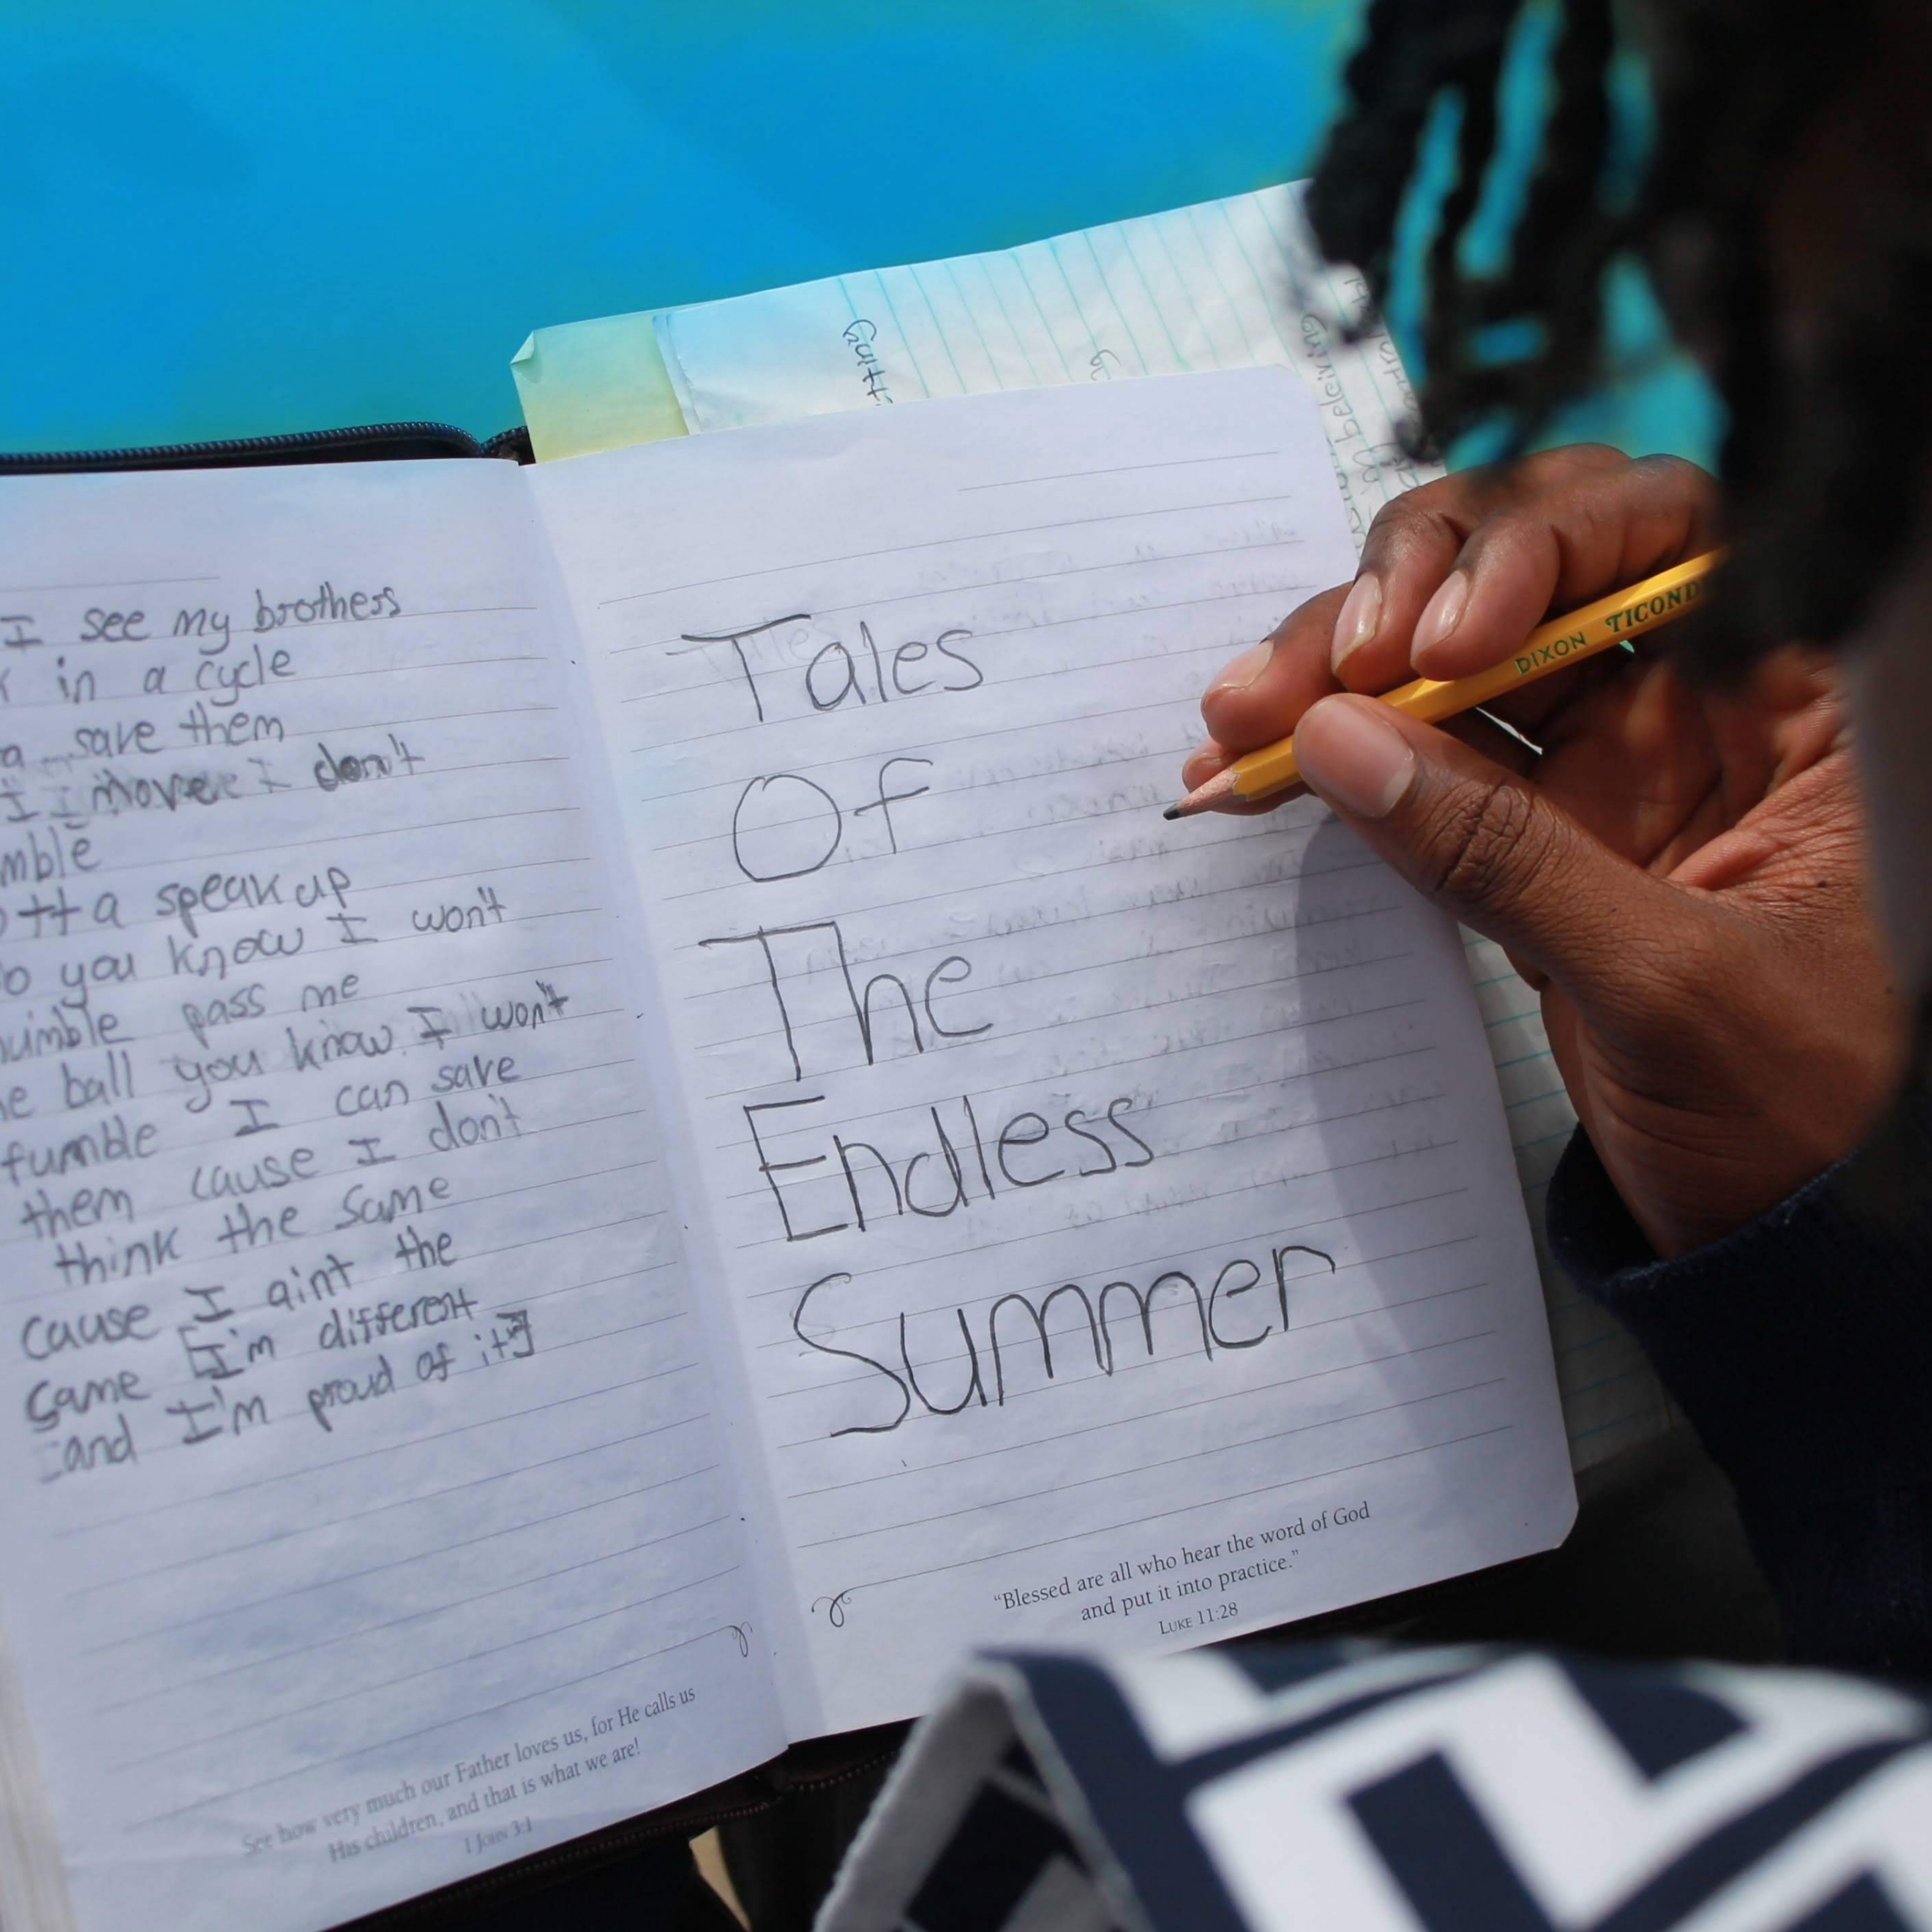 I see my brothers
in a cycle
save them
I move I don't
speak up
you know I won't
pass me
ball you know I won't
fumble I can save
them cause I don't
think the same
cause I aint the
same [I'm different
and I'm proud of it]
See how very much our Father loves us, for He calls us
His children, and that is what we are!
1 John 3:1
Tales
Of
The
Endless
Summer
"Blessed are all who hear the word of God
and put it into practice."
Luke 11:28
DIXON TICOND